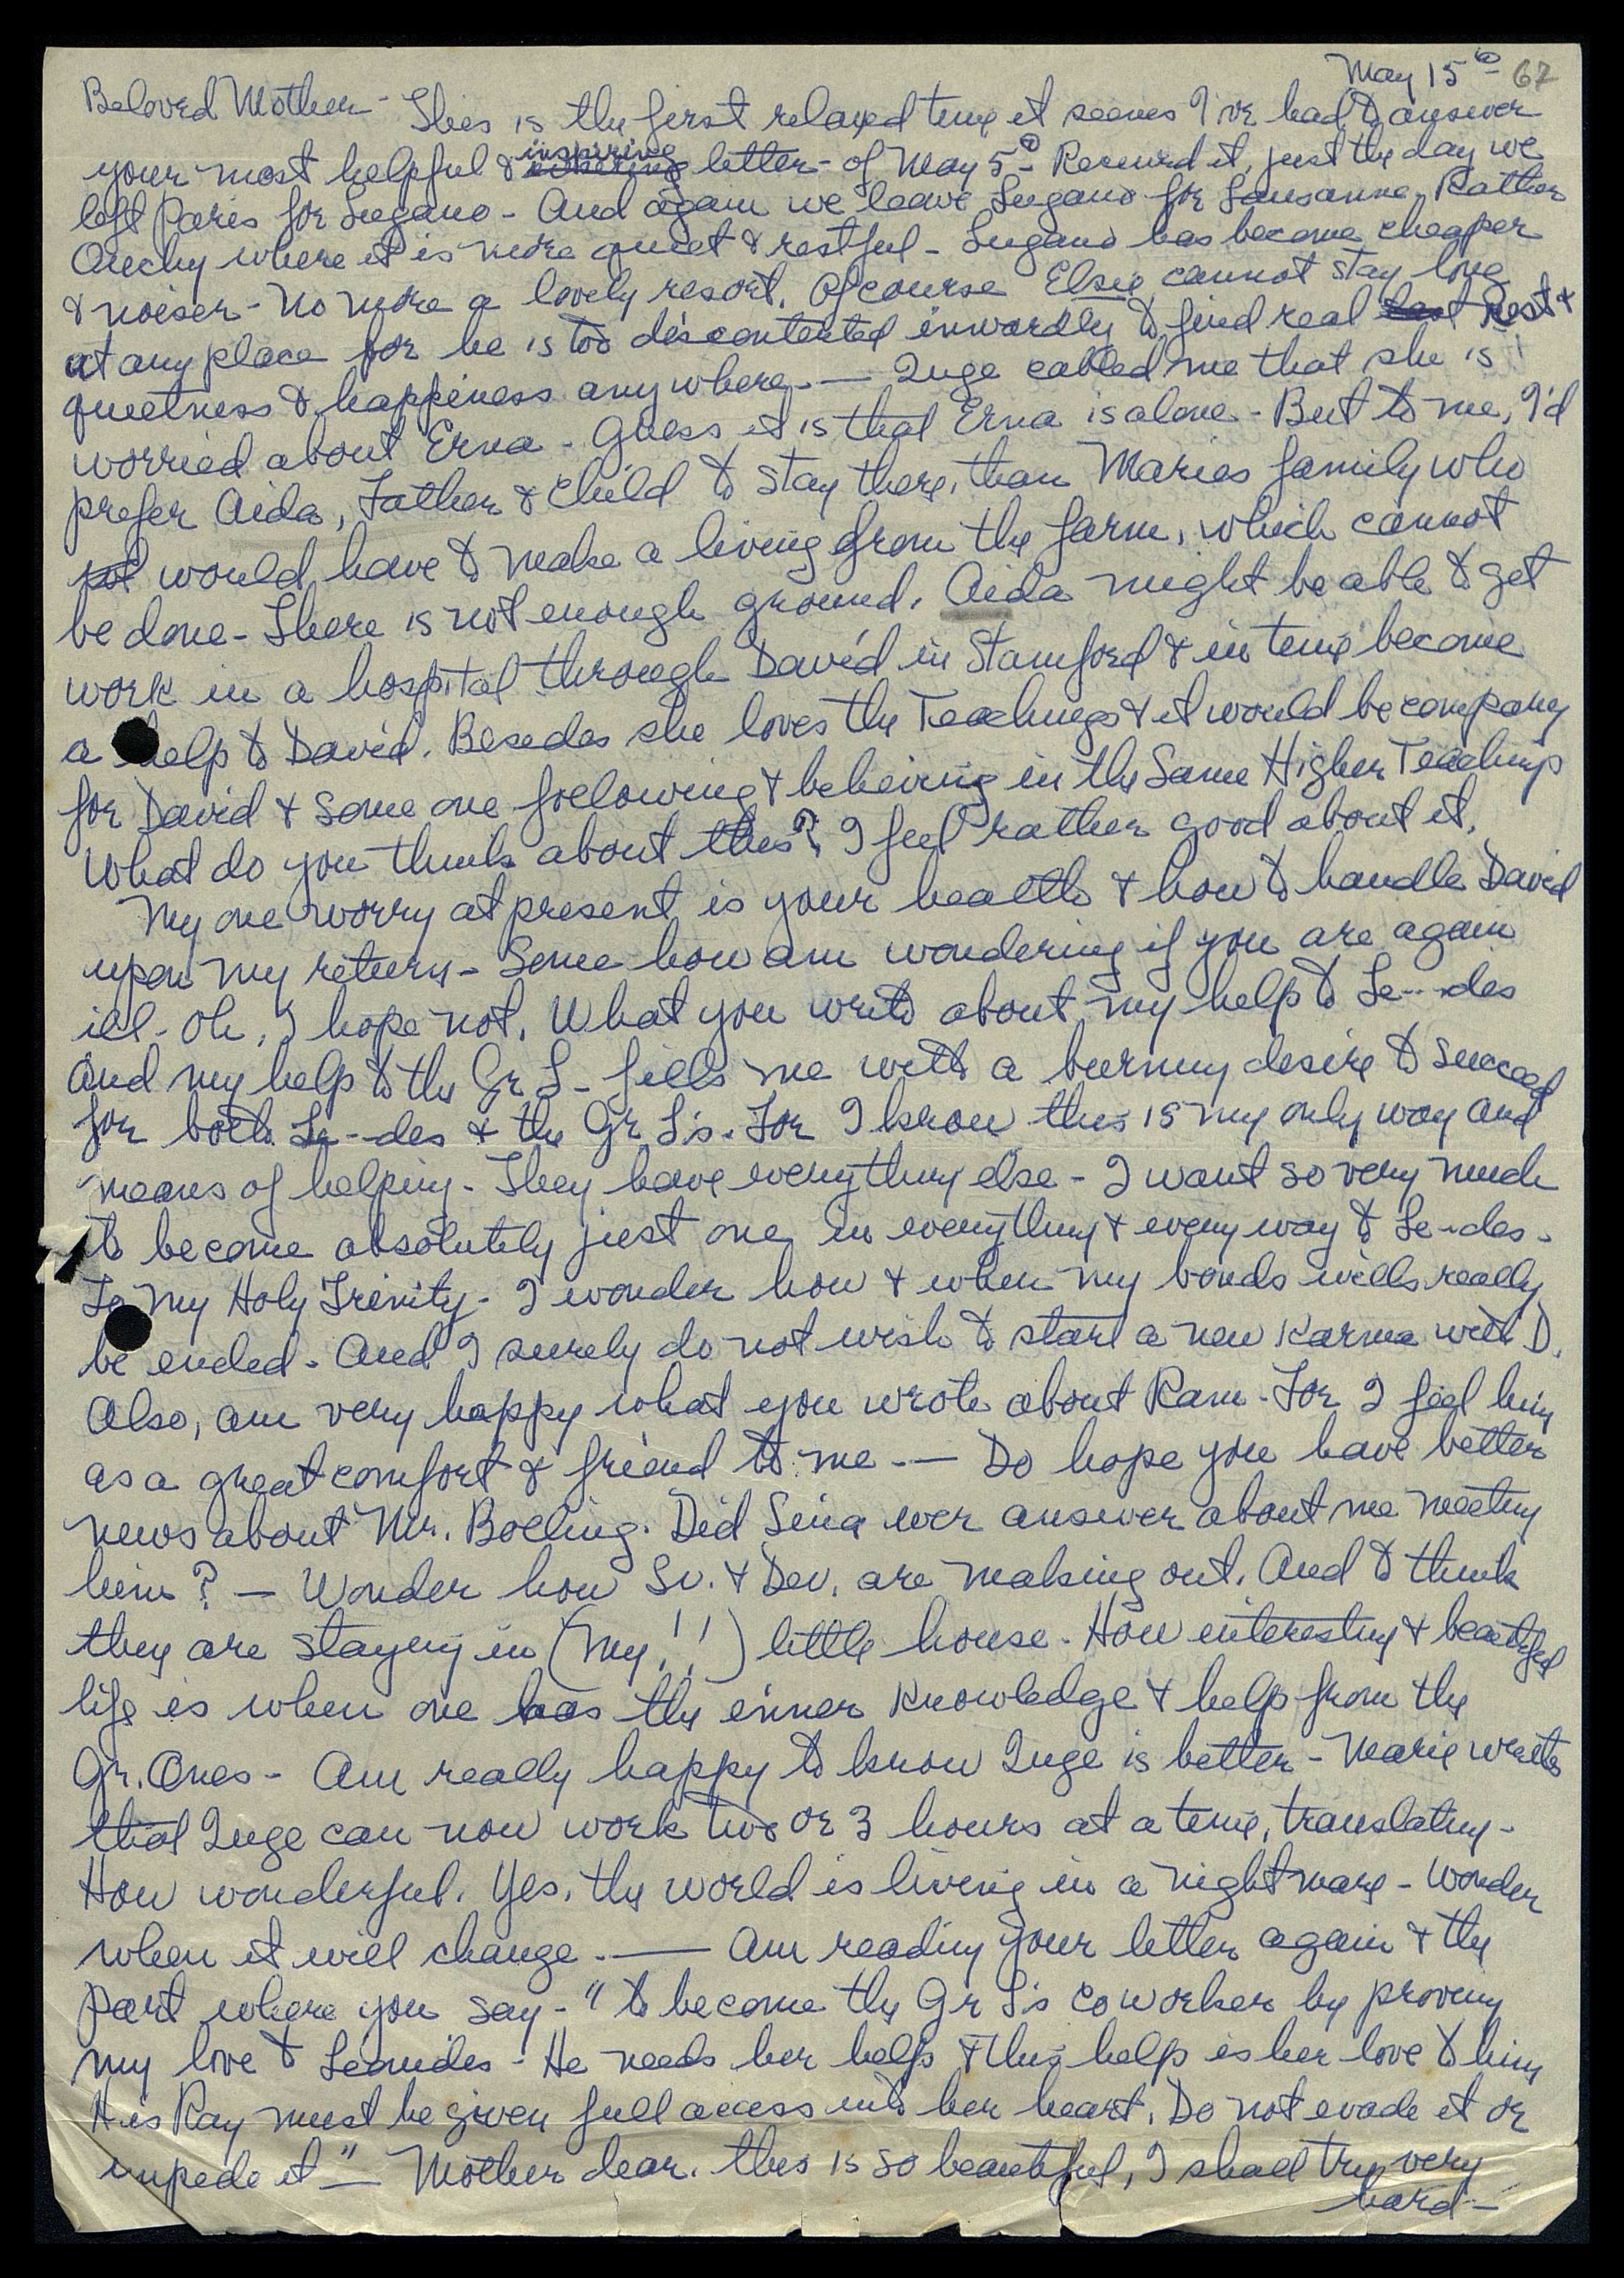 May 15th 62
Beloved Mother - This is the first relaxed time it seems I've had to answer
your most helpful & inspiring letter - of May 5th Received it, just the day we
left Paris for Lugano - And again we leave Lugano for Lausanne, Rather
Ouchy where it is more quiet & restful - Lugano has become cheaper
& noiser - No more a lovely resort. Of course Elsie cannot stay long
at any place for he is too discontented inwardly to find real Rest &
quietness & happiness anywhere. — Inge cabled me that she is
worried about Erna - Guess it is that Erna is alone - But to me, I'd
prefer Aida, Father & child to stay there, than Maries family who
would have to make a living from the farm, which cannot
be done - There is not enough ground. Aida might be able to get
work in a hospital through David in Stamford & in time become
a help to David. Besides she loves the Teachings & it would be company
for David & some one following & believing in the Same Higher Teachings
What do you think about this? I feel rather good about it.
My one worry at present is your health & how to handle David
upon my return - Some how am wondering if you are again
ill - Oh, I hope not. What you write about my help to Le---des
And my help to the Gr L - fills me with a burning desire to succeed
for both Le--des & the Gr L's. For I know this is my only way and
means of helping - They have everything else - I want so very much
to become absolutely just one, in everything & every way to Le--des -
To my Holy Trinity - I wonder how & when my bonds wills really
be ended - And I surely do not wish to start a new Karma with D.
Also, am very happy what you wrote about Ram - For I feel him
as a great comfort & friend to me -— Do hope you have better
news about Mr. Bolling. Did Sina ever answer about me meeting
him? — Wonder how Sv. & Dev. are making out. And to think
they are staying in (my!!) little house - How interesting & beautiful
life is when one has the inner Knowledge & help from the
Gr. Ones - Am really happy to know Inge is better - Marie writes
that Inge can now work two or 3 hours at a time, translating -
How wonderful. Yes, the world is living in a nightmare - Wonder
when it will change. —— Am reading your letter again & the
part where you say - "to become the Gr L's coworker by proving
my love to Leonides - He needs her help & this help is her love to him
His Ray must be given full access into her heart. Do not evade it or
impede it" — Mother dear. this is so beautiful, I shall try very
hard —